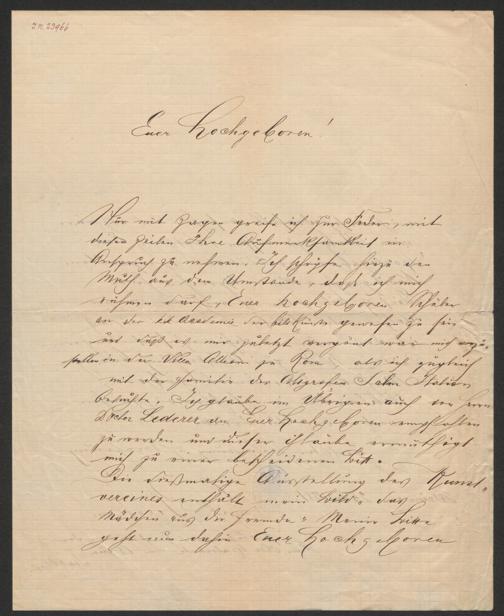 J.N. 23966
Euer Hochgeboren!
Nur mit Zagen greife ich zur Feder, mit
diesen Zeilen Ihre Aufmerksamkeit in
Anspruch zu nehmen. Ich schöpfe hiezu den
Muth aus dem Umstande, daß ich mich
rühmen darf, Euer Hochgeboren Schüler
an der k.k. Academie der bild. Künste gewesen zu sein
und daß es mir zuletzt vergönt war mich vorzu-
stellen in der Villa in Rom, als ich zugleich
mit der Familie des Altgrafen Salm Italien
besuchte. Ich glaube im Übrigen auch von Herrn
Doctor Lederer an Euer Hochgeboren empfohlen
zu werden und dieser Glaube ermuthigt
mich zu einer bescheidenen Bitte.
Die dießmalige Ausstellung des Kunst-
vereines enthält mein Bild "das
Mädchen aus der Fremde". Meine Bitte
geht nun dahin Euer Hochgeboren